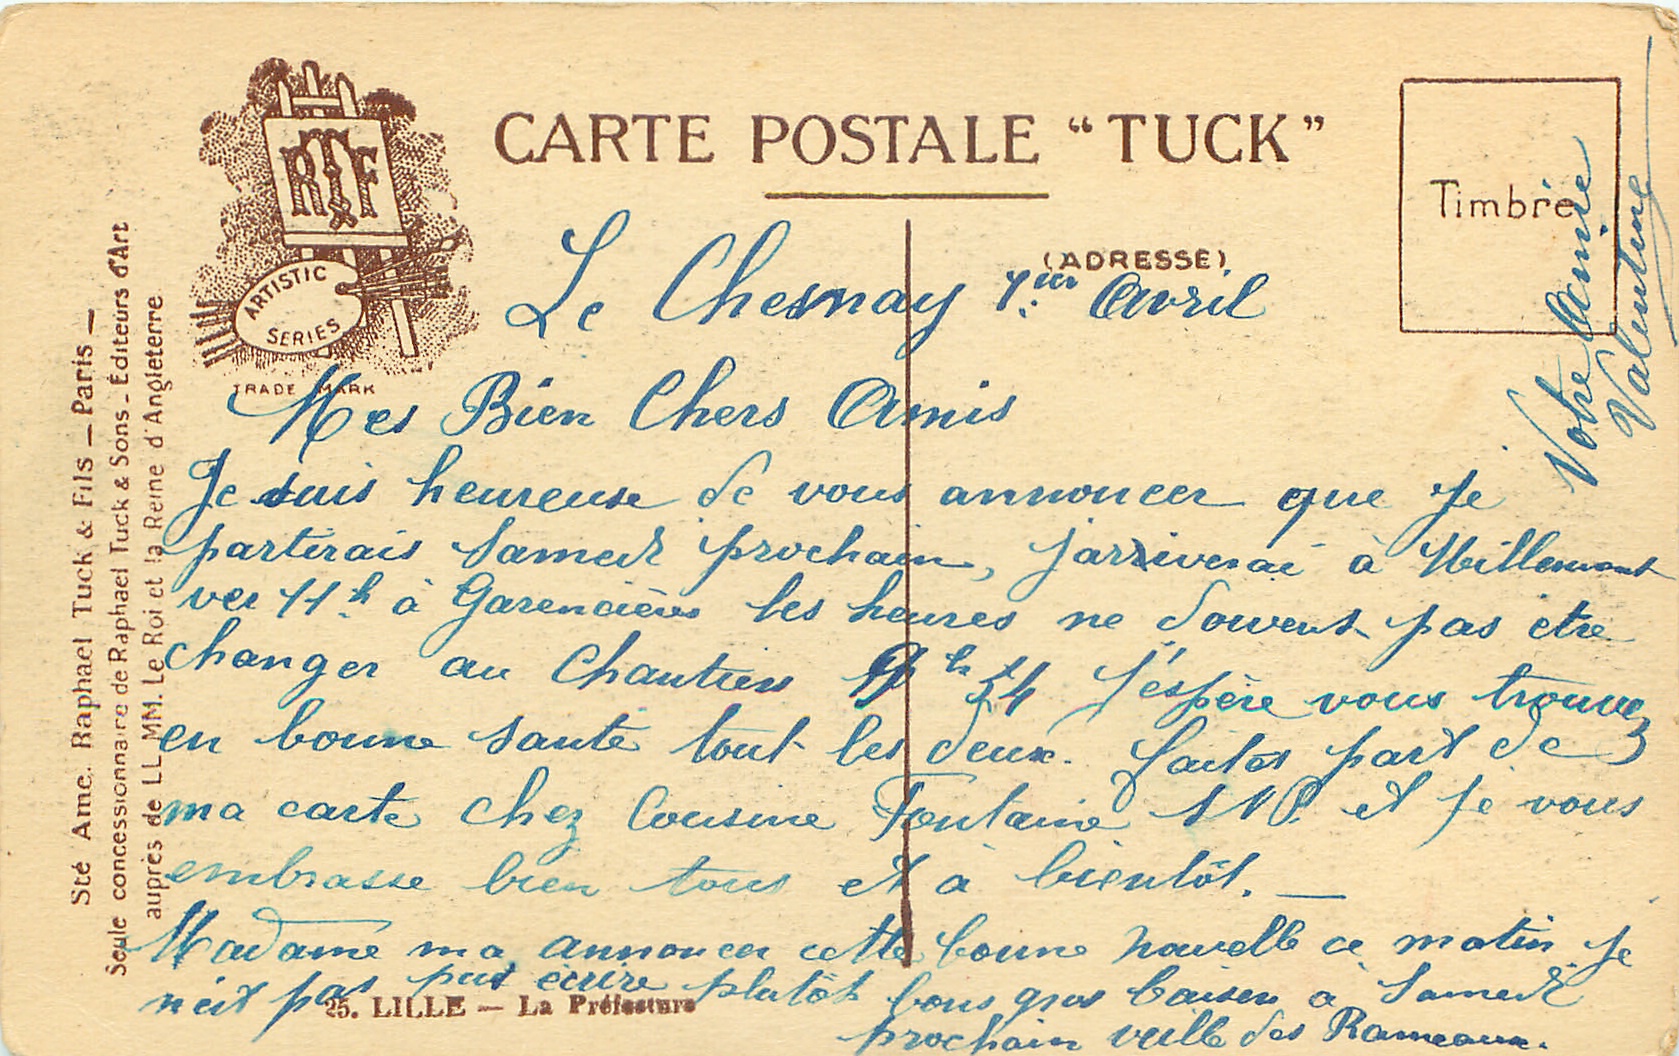 CARTE POSTALE “TUCK”
RTF
ARTISTIC
SERIES
TRADE MARK
(ADRESSE)
Timbre
Sté Ame. Raphael Tuck & Fils — Paris —
Seule concessionnaire de Raphael Tuck & Sons - Éditeurs d'Art
auprès de LL. MM. Le Roi et la Reine d'Angleterre
Le Chesnay 1er Avril
Mes Bien Chers Amis
Je suis heureuse de vous annoncer que je
partirais Samedi prochain, j'arriverai à
ver 11h à Garencières les heures ne doivent pas etre
changer au Chantiers 9h 54 J'éspère vous trouvez
en bonne santé tout les deux. Faites part de
ma carte chez Cousine Fontaine S.V.P. et je vous
embrasse bien tous et à bientôt. —
Madame ma annoncer cette bonne nouvelle ce matin je
n'eit pas put écrire plutôt bons gros baisers à Samedi
prochain veille des Rameaux.
Votre Amie
Valentine
25. LILLE — La Préfecture